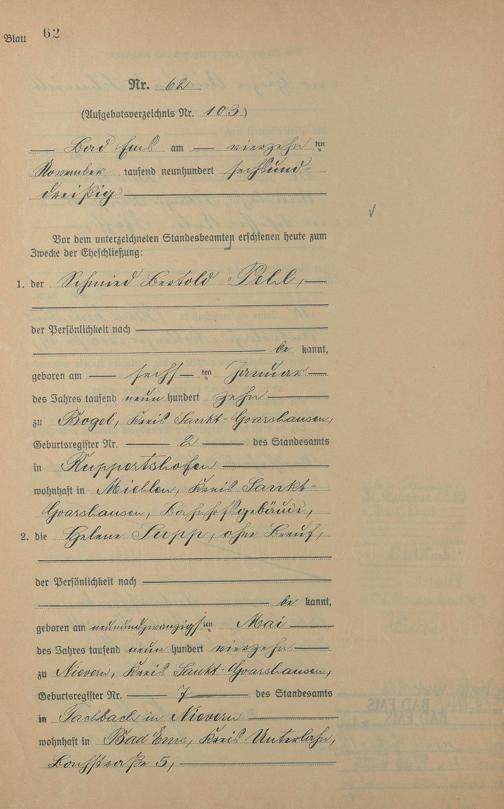 Blatt 62
Nr. 62
(Aufgebotsverzeichnis Nr. 103)
Bad Ems am vierzehn ten
November tausend neunhundert sechsund-
dreißig
Vor dem unterzeichneten Standesbeamten erschienen heute zum
Zwecke der Eheschließung:
1. der Schmied Bertold Pebl,
der Persönlichkeit nach
be kannt,
geboren am sechs ten Januar
des Jahres tausend neun hundert zehn
zu Bogel, Kreis Sankt-Goarshausen,
Geburtsregister Nr. 2 des Standesamts
in Ruppertshofen
wohnhaft in Miehlen, Kreis Sankt-
Goarshausen, Bahnhofsgebäude,
2. die Helene Supp, ohne Beruf,
der Persönlichkeit nach
be kannt,
geboren am neunundzwanzigsten Mai
des Jahres tausend neun hundert vierzehn
zu Nievern, Kreis Sankt-Goarshausen,
Geburtsregister Nr. 7 des Standesamts
in Fachbach in Nievern
wohnhaft in Bad Ems, Kreis Unterlahn,
5,
BAD EMS
BAD EMS